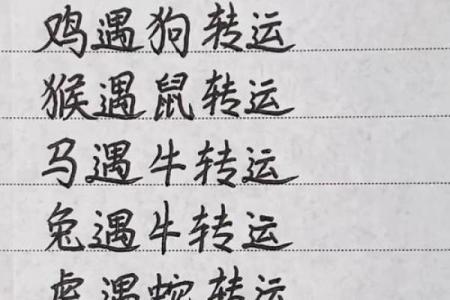 鸡遇狗转运
猴遇鼠转运
马遇牛转运
兔遇牛转运
虎遇蛇转运